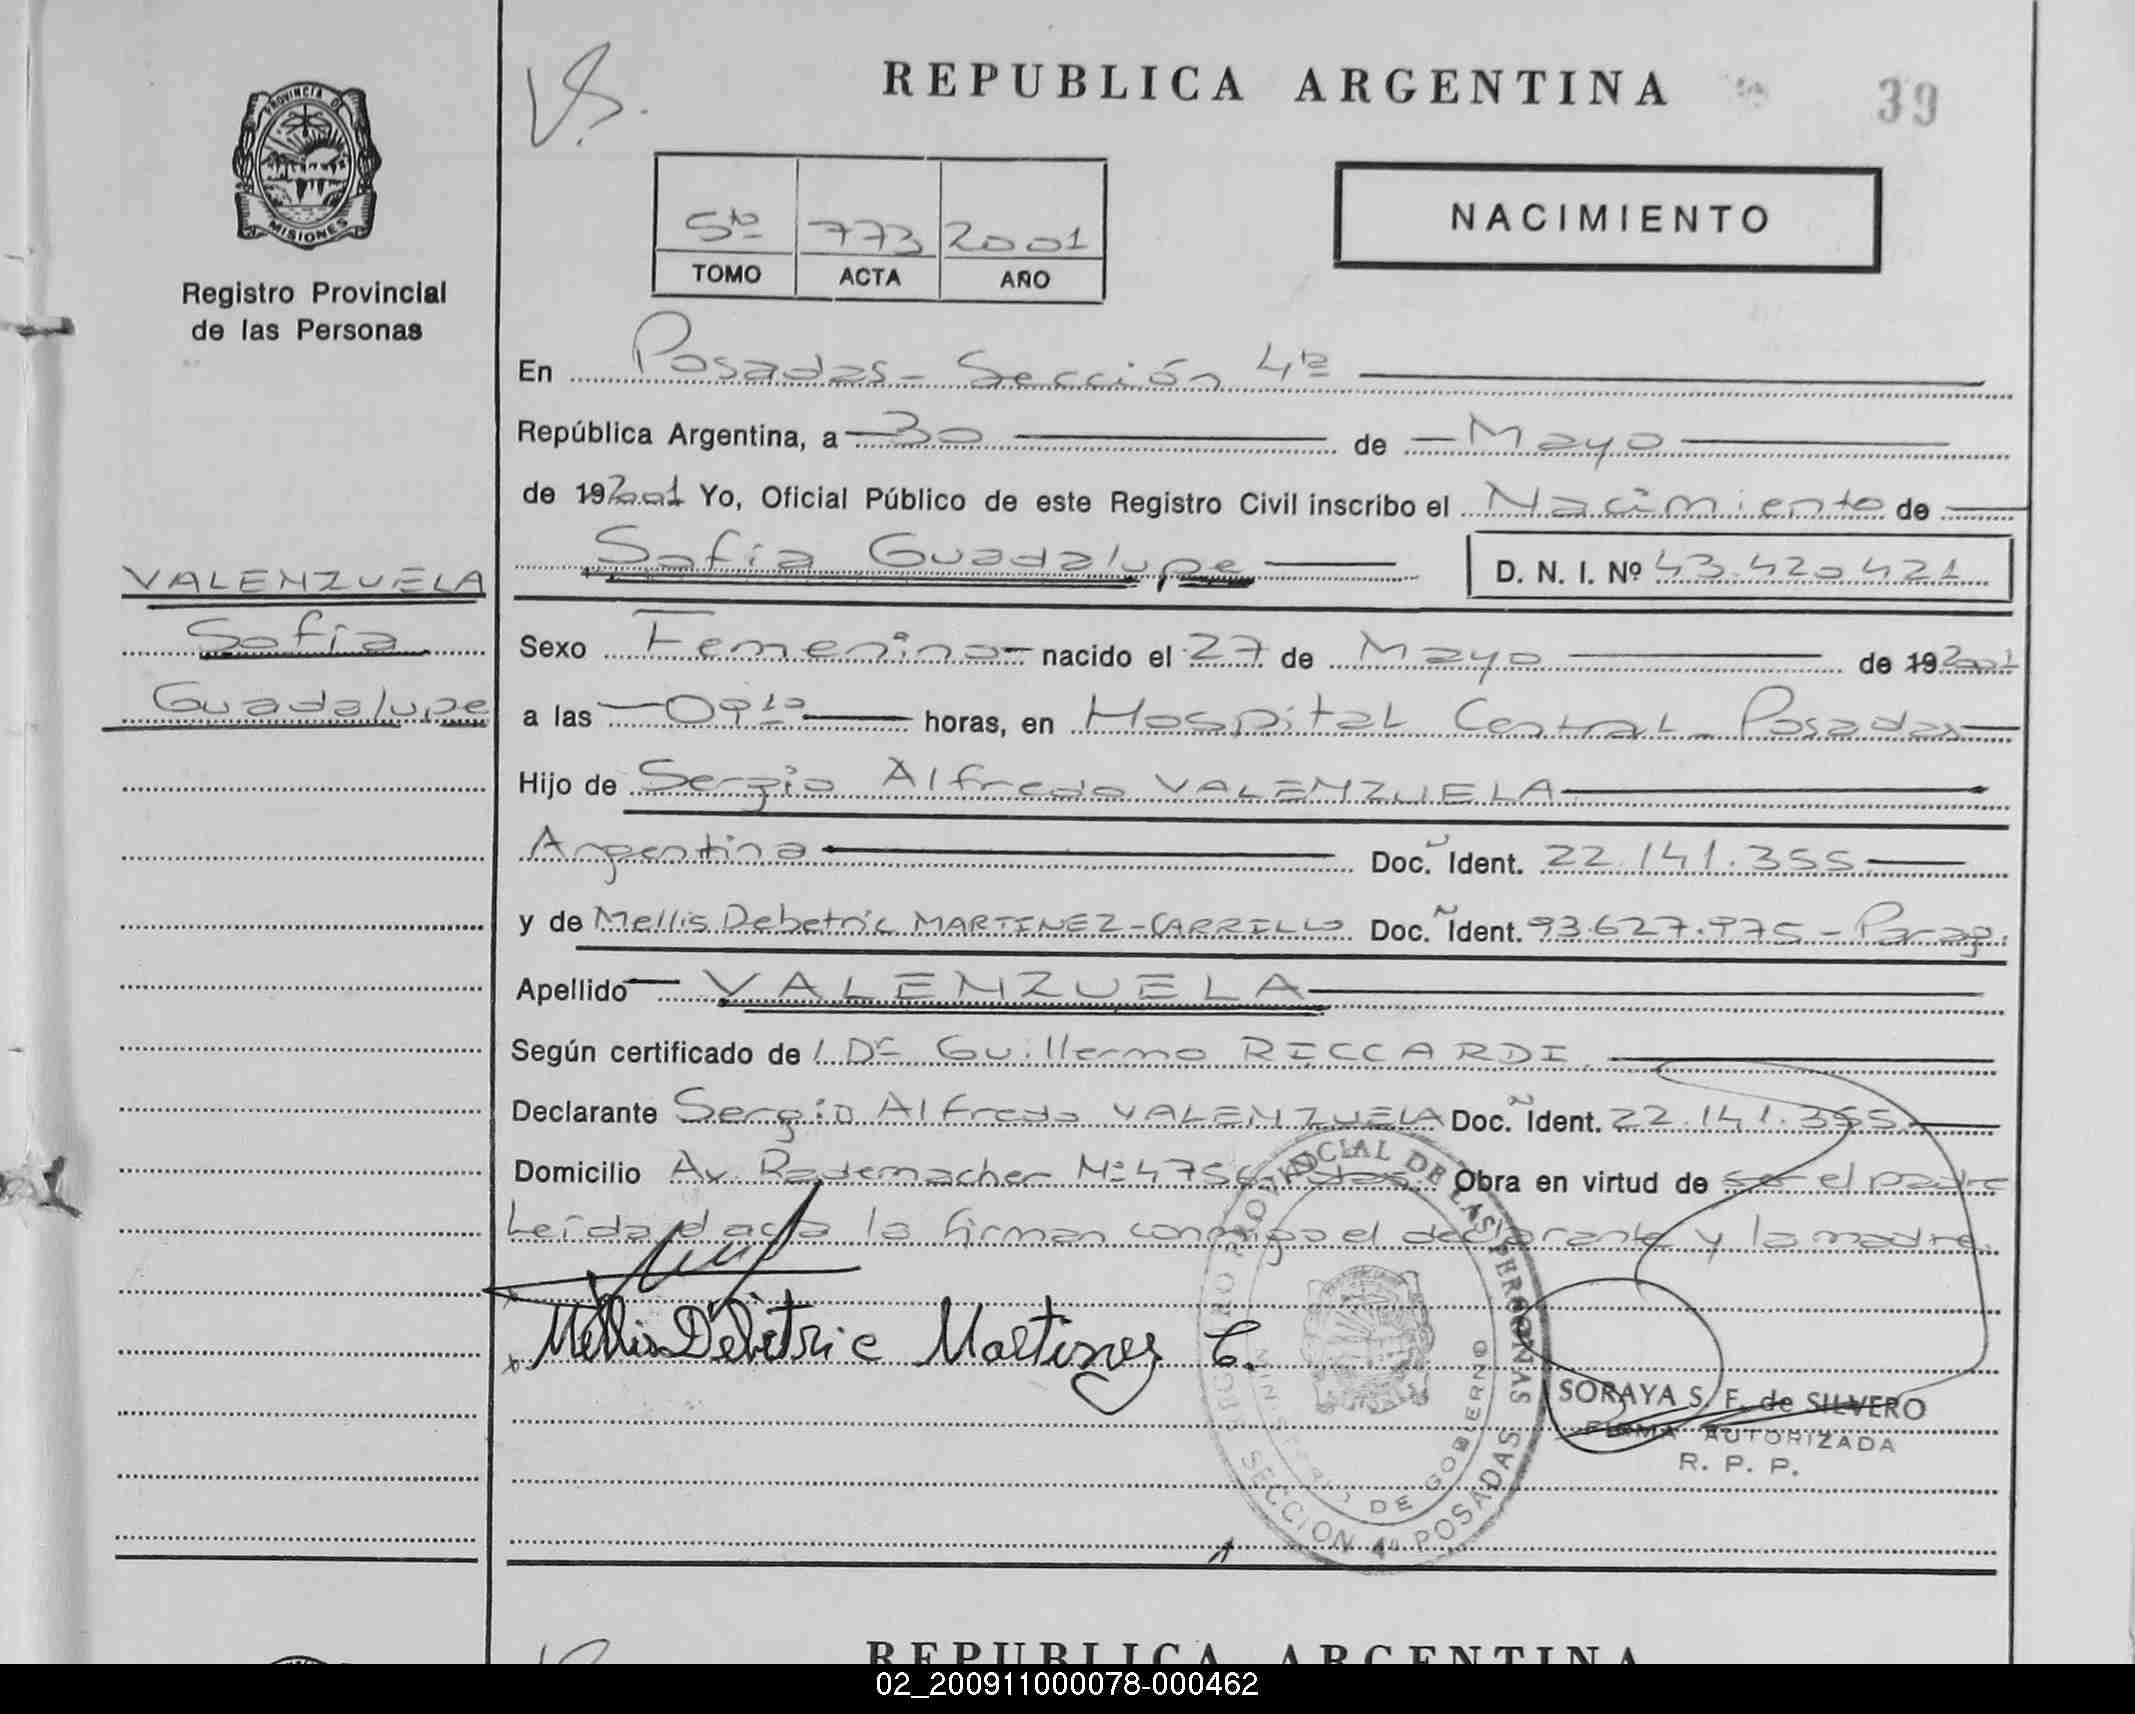 REPUBLICA ARGENTINA
39
PROVINCIA DE
MISIONES
Registro Provincial
de las Personas
5to 773 2001
TOMO ACTA AÑO
NACIMIENTO
En Posadas - Sección 4ta
República Argentina, a 30 de Mayo
de 19 2001 Yo, Oficial Público de este Registro Civil inscribo el Nacimiento de
Sofía Guadalupe D. N. I. Nº 43.420.421
VALENZUELA
Sofía
Guadalupe
Sexo Femenino nacido el 27 de Mayo de 19 2001
a las 09 10 horas, en Hospital Central - Posadas
Hijo de Sergio Alfredo VALENZUELA
Argentina Doc. Ident. 22.141.355
y de Mellis Debetric MARTINEZ-CARRILLO Doc. Ident. 93.627.975 - Parag.
Apellido VALENZUELA
Según certificado de l Dr Guillermo RICCARDI
Declarante Sergio Alfredo VALENZUELA Doc. Ident. 22.141.355
Domicilio Av. Rademacher Nº 4756 Pdas. Obra en virtud de ser el padre
Leída el acta la firman conmigo el declarante y la madre.
Mellis Debetric Martinez C.
REGISTRO PROVINCIAL DE LAS PERSONAS
MINISTERIO DE GOBIERNO
SECCION 4ª POSADAS
SORAYA S. F. de SILVERO
FIRMA AUTORIZADA
R. P. P.
REPUBLICA ARGENTINA
02_200911000078-000462